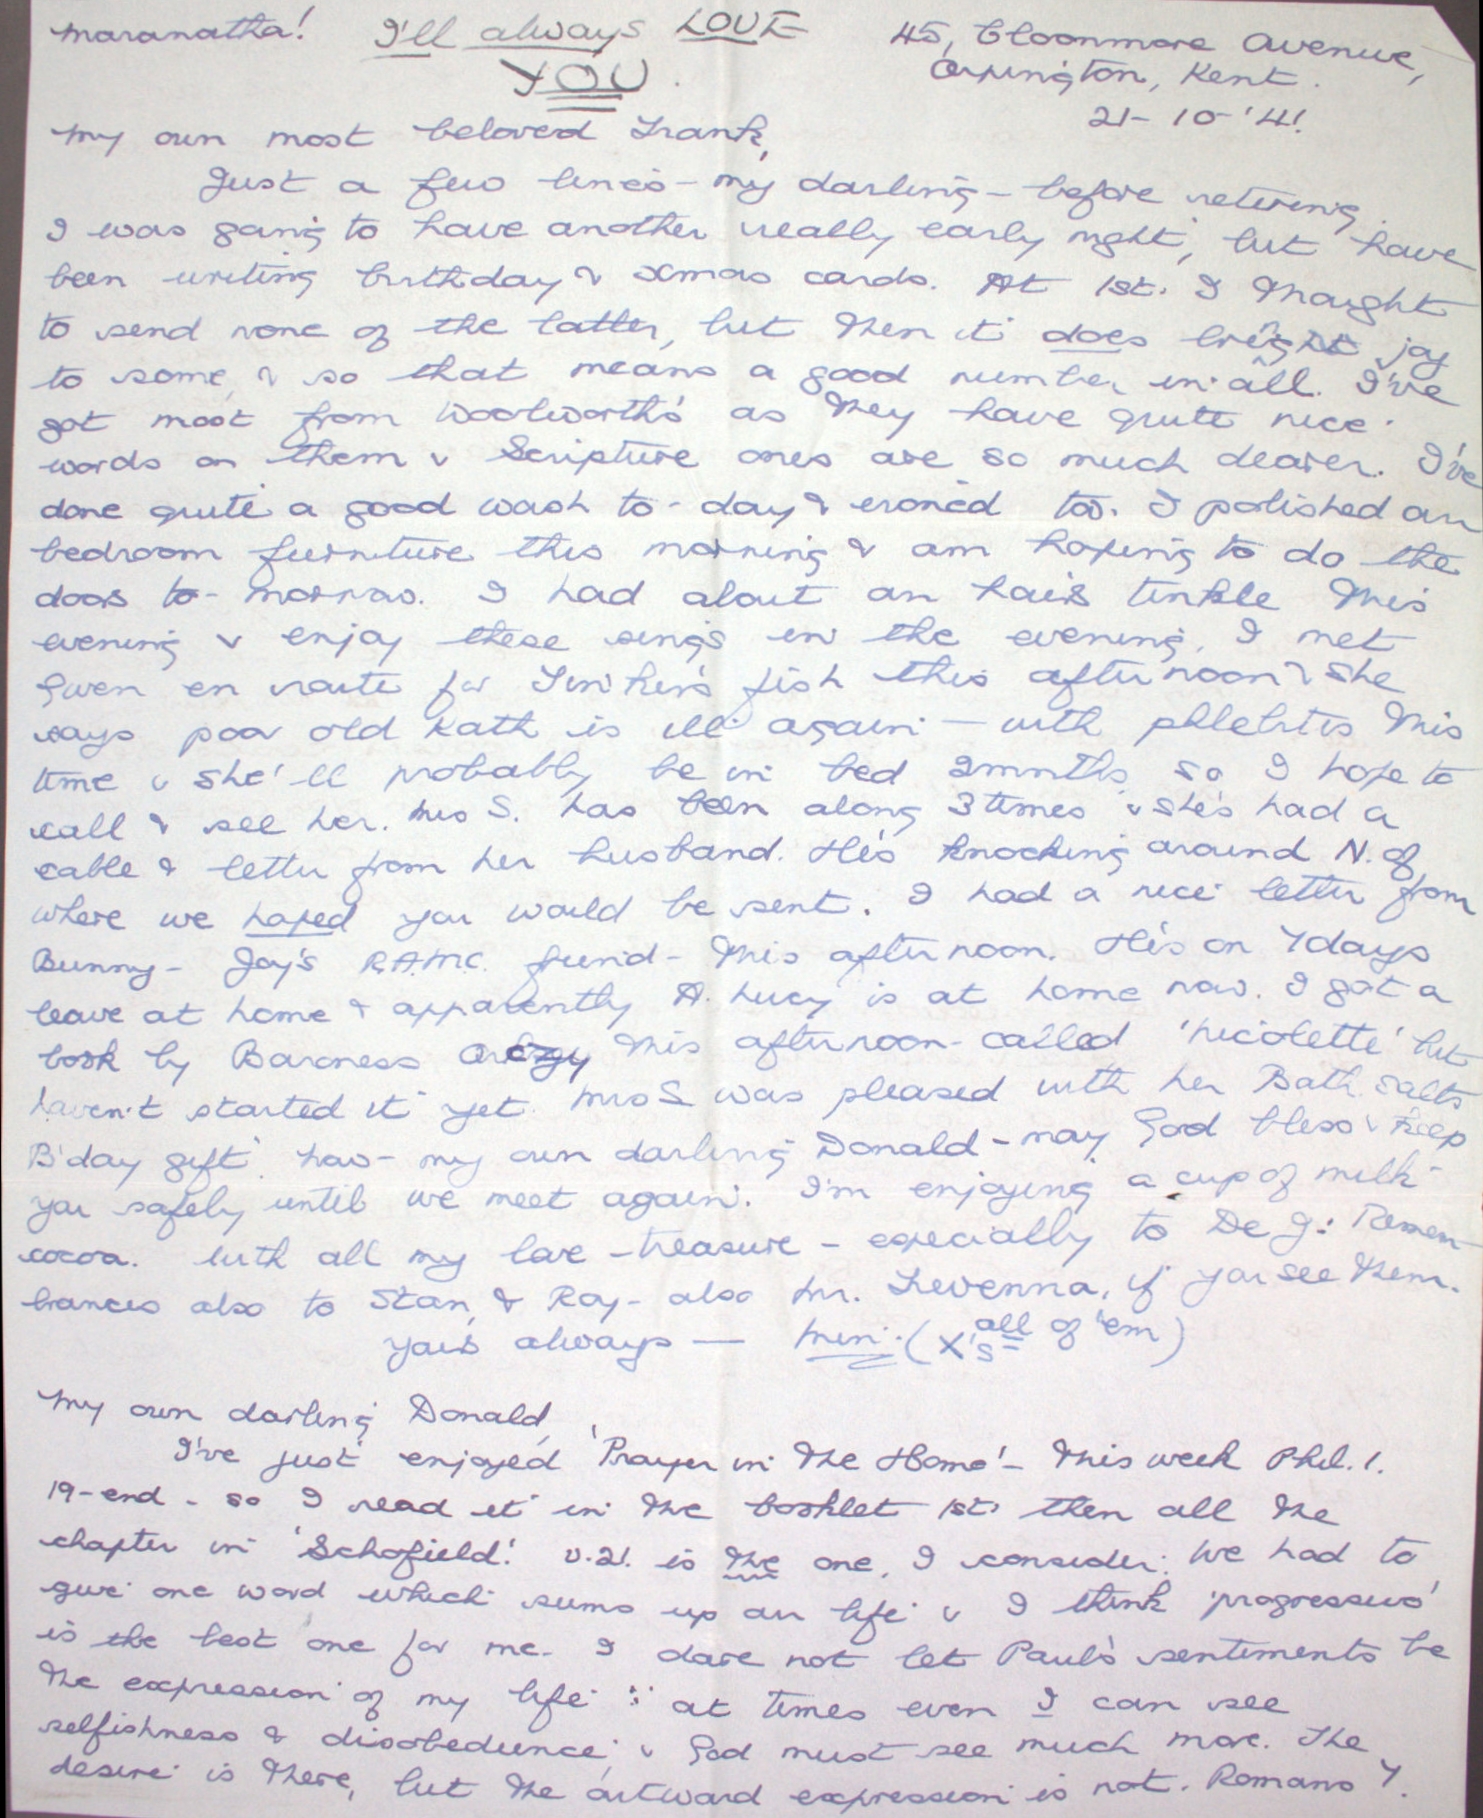 Maranatha! I'll always LOVE
YOU.
45, Cloonmore Avenue,
Orpington, Kent.
21-10-'41.
My own most beloved Frank,
Just a few lines - my darling - before retiring.
I was going to have another really early night, but have
been writing birthday & Xmas cards. At 1st. I thought
to send none of the latter, but then it does bring joy
to some, & so that means a good number in all. I've
got most from Woolworth's as they have quite nice
words on them & Scripture ones are so much dearer. I've
done quite a good wash to-day & ironed too. I polished our
bedroom furniture this morning & am hoping to do the
doors to-morrow. I had about an hour's tinkle this
evening & enjoy these sings in the evening. I met
Gwen en route for Tinker's fish this afternoon & she
says poor old Kath is ill again - with phlebitis this
time & she'll probably be in bed 2 months, so I hope to
call & see her. Mrs S. has been along 3 times & she's had a
cable & letter from her husband. He's knocking around N. of
where we hoped you would be sent. I had a nice letter from
Bunny - Joy's R.A.M.C. friend - this afternoon. He's on 7 days
leave at home & apparently A. Lucy is at home now. I got a
book by Baroness Orczy this afternoon - called 'Nicolette' but
haven't started it yet. Mrs S was pleased with her Bath salts
B'day gift. Now - my own darling Donald - may God bless & keep
you safely until we meet again. I'm enjoying a cup of milk
cocoa. With all my love - treasure - especially to De J: Remem-
brances also to Stan, & Ray - also Mr. Levenna, if you see them.
Yours always — Min. (X's all of 'em)
My own darling Donald,
I've just enjoyed 'Prayer in the Home' - this week Phil. 1.
19-end - so I read it in the booklet 1st. then all the
chapter in 'Schofield'. v.21. is the one, I consider. We had to
give one word which sums up our life & I think 'progressive'
is the best one for me. I dare not let Paul's sentiments be
the expression of my life ∵ at times even I can see
selfishness & disobedience, & God must see much more. The
desire is there, but the outward expression is not. Romans 7.